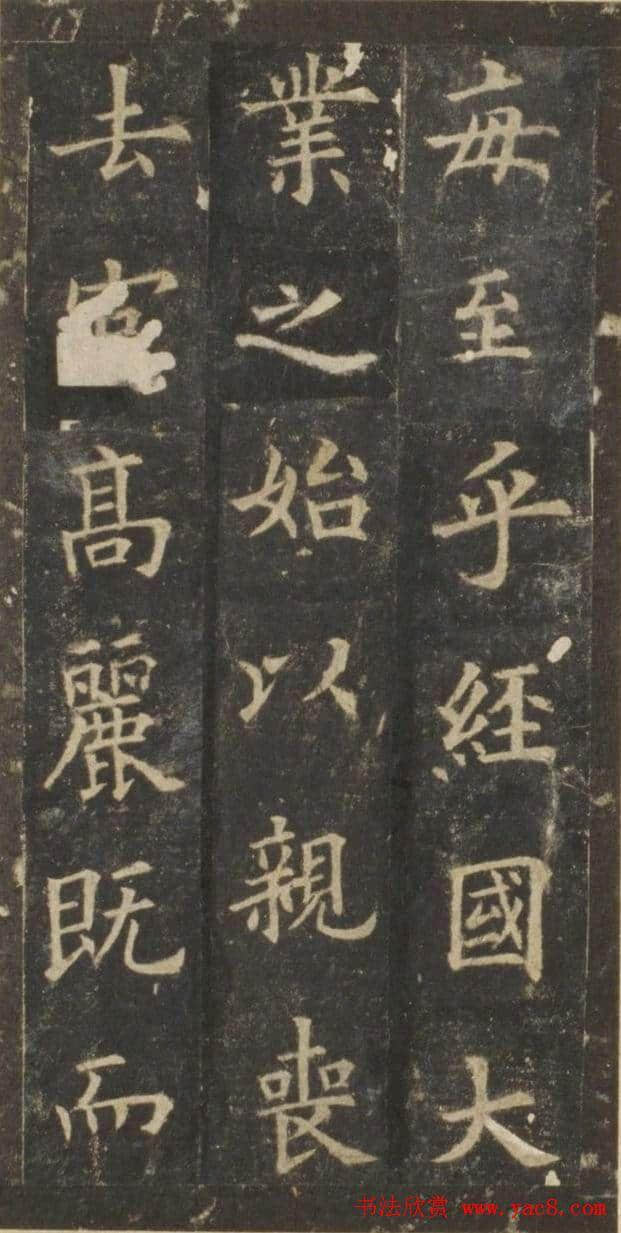 毎至乎經國大
業之始以親喪
去高麗既而
书法欣赏 www.yac8.com